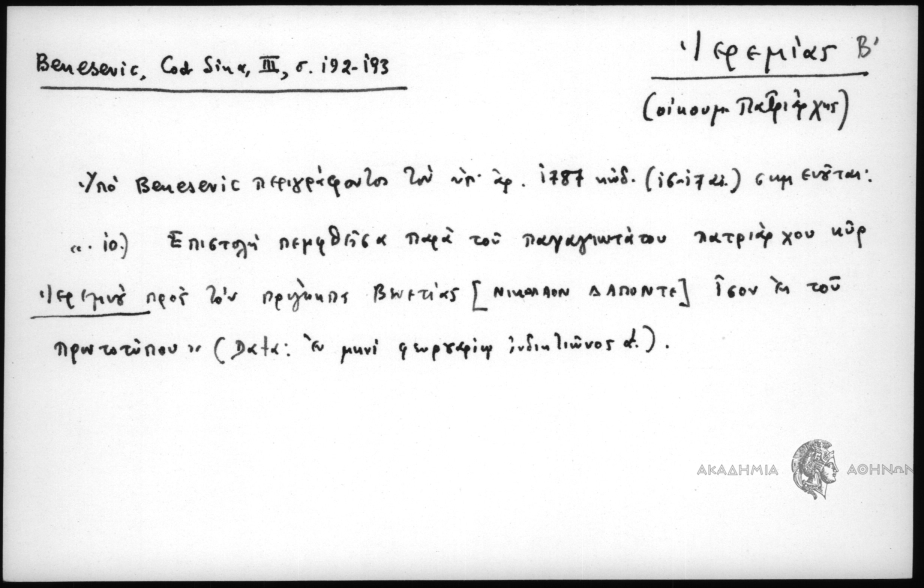 Benesevic, Cod Sina, III, σ. 192-193
Ἱερεμίας Β'
(οἰκουμ. Πατριάρχης)
Ὑπό Benesevic περιγράφοντος τὸν ὑπ' ἀρ. 1787 κώδ. (16-17 αἰ.) σημειοῦται:
«. 10.) Ἐπιστολὴ πεμφθεῖσα παρὰ τοῦ παναγιωτάτου πατριάρχου κῦρ
Ἱερεμίου πρὸς τὸν πρίγκηπε Βενετίας [ΝΙΚΟΛΑΟΝ ΔΑΠΟΝΤΕ] ἴσον ἐκ τοῦ
πρωτοτύπου» (Data: ἐν μηνὶ φευρουαρίῳ ἰνδικτιῶνος α.).
ΑΚΑΔΗΜΙΑ ΑΘΗΝΩΝ